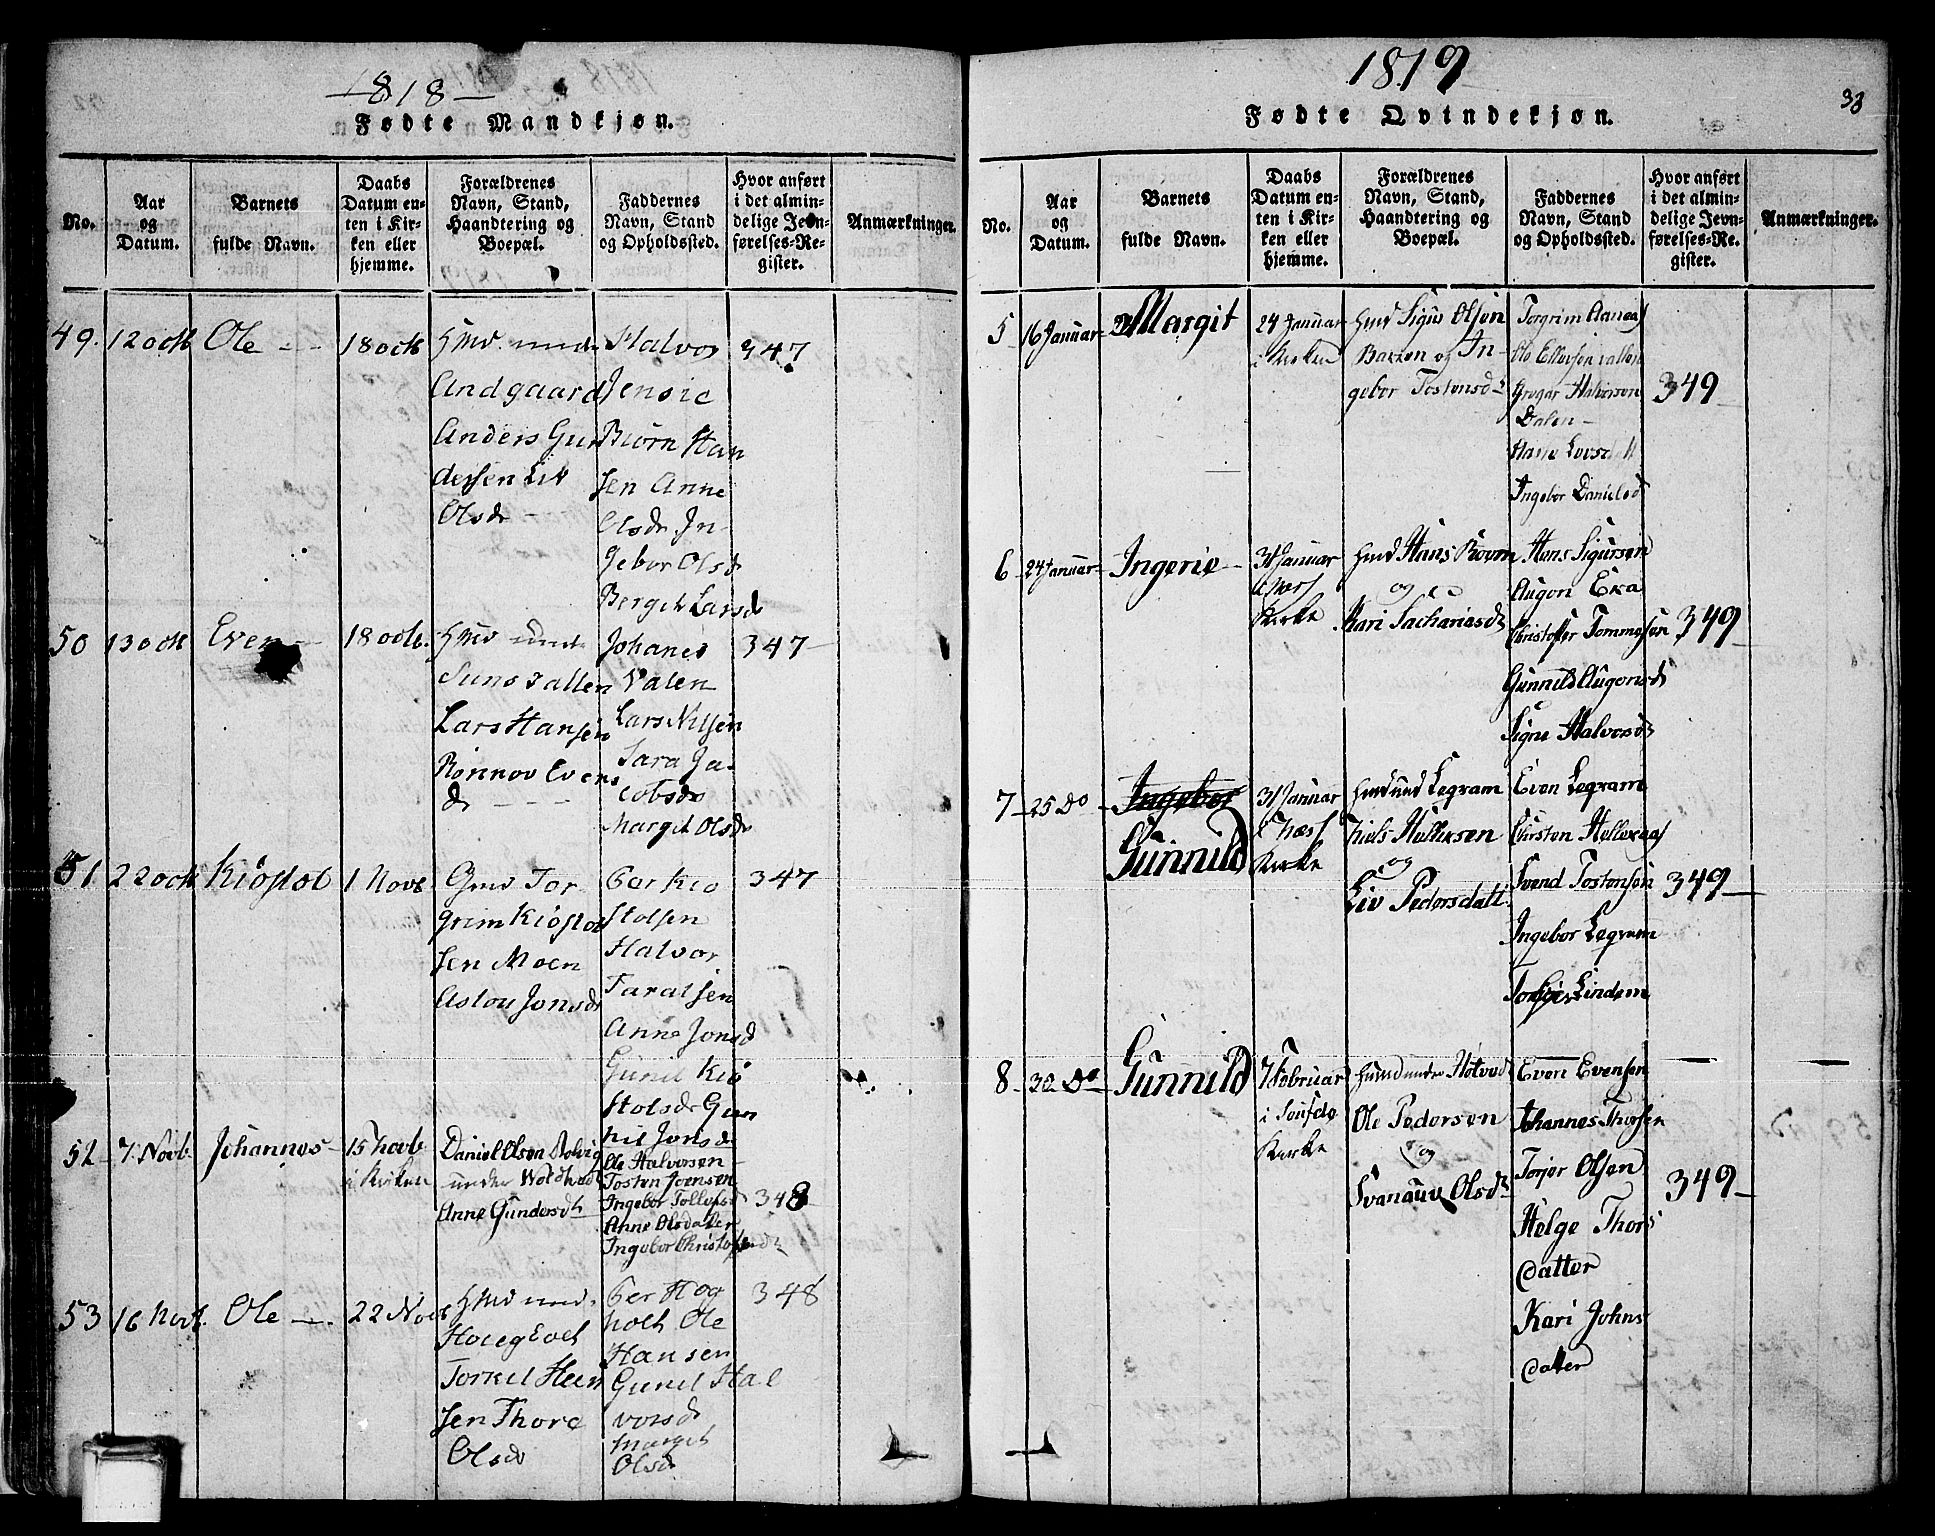 1818
Fødte Mandkjøn.
No.
Aar
og
Datum.
Barnets
fulde Navn.
Daabs
Datum en-
ten i Kir-
ken eller
hjemme.
Forældrenes
Navn, Stand,
Haandtering og
Boepæl.
Faddernes
Navn, Stand
og Opholdssted.
Hvor anført
i det almin-
delige Jevn-
førelses-Re-
gister.
Anmærkninger.
49. 12 octb Ole 18 octb
Andgaard
Anders Gun
dersen Liv
Olsdr
Halvor
Jensie
Biørn Han
sen Anne
Olsdr In-
gebor Olsd
Bergit Larsd
347
50 13 octb Even 18 octb.
Lars Hansen
Rønnov Evens
dr
Johanes
Valen
Lars Nilsen
Sara Ja-
cobsdr
Margit Olsdr
347
51 22 octb Kiøstol 1 Novb
Gmd Tor
grim Kiøstol
sen Moen
Aslou Jonsdr
Per Kiø
stolsen
Halvor
Taralsen
Anne Jonsd
Gunil Kiø
stolsdr Gun
nil Jonsdr
347
52 7. Novb. Johannes 15 Novb
i Kirken
Daniel Olsen
under
Anne Gundersdt
Ole Halvorsen
Tosten Joensen
Ingebor Tollefsd
Anne Olsdatter
Ingebor Christofersdr
348
53 16 Novb. Ole 22 Novb
Torkel Han
sen Thore
Olsdr
Per Hog
holt Ole
Hansen
Gunil Hal
vorsdr
Marget
Olsdr
348
1819
33
Fødte Qvindekjøn.
No.
Aar
og
Datum.
Barnets
fulde Navn.
Daabs
Datum en-
ten i Kir-
ken eller
hjemme.
Forældrenes
Navn, Stand,
Haandtering og
Boepæl.
Faddernes
Navn, Stand
og Opholdssted.
Hvor anført
i det almin-
delige Jevn-
førelses-Re-
gister.
Anmærkninger.
5 16 Januar Margit 24 Januar
i Kirken
Hmd Sigur Olsen
Bakken og In-
gebor Tostensdr
Torgrim Aanaas
Ole Ellefsen
Gregar Halvorsen
Dalen
Ingebor Danielsd
349
6 24 Januar Ingerie 31 Januar
Kirke
Hmd Hans
og
Kari Sachariasdr
Hans Sigursen
Augon Eka
Christoffer Tommesen
Gunnild Augonsdr
Signe Halvorsdr
349
7 25 Do Ingebor
Gunnild
31 Januar
Kirke
Hmd und Legram
Niels Hellersen
og
Liv Pedersdatt.
Even Legram
Kirsten Hellekaas
Svend Tostensen
Ingebor Legram
Lindem
349
8 30 Do Gunnild 7 Februar
i
Kirke
Husmd under Hotvedt
Ole Pedersen
og
Svanaug Olsdr
Even Evensen
Johannes Thorsen
Torjer Olsen
Helge Thors
datter
Kari Johns
datter
349